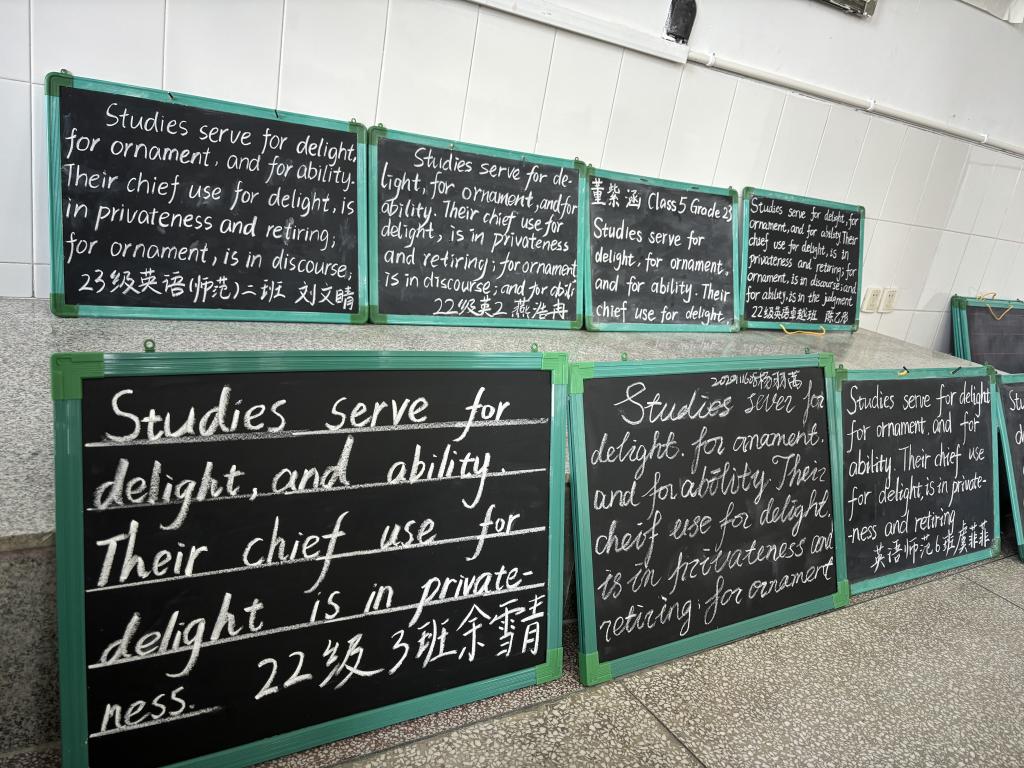 Studies serve for delight,
for ornament, and for ability.
Their chief use for delight, is
in privateness and retiring;
for ornament, is in discourse;
23级英语(师范)二班 刘文晴
Studies serve for de-
light, for ornament, and for
ability. Their chief use for
delight, is in privateness
and retiring; for ornament
is in discourse; and for abili
22级英2 燕浩冉
董紫涵 Class 5 Grade 23
Studies serve for
delight, for ornament,
and for ability. Their
chief use for delight,
Studies serve for delight, for
ornament, and for ability Their
chief use for delight, is in
privateness and retiring; for
ornament, is in discourse; and
for ability, is in the judgment
22级英语卓越班 陈艺彤
Studies serve for
delight, and ability.
Their chief use for
delight is in private-
ness. 22级3班余雪青
Studies sever for
delight. for ornament.
and for ability. Their
cheif use for delight.
is in privateness and
retiring. for ornament
Studies serve for delight
for ornament, and for
ability. Their chief use
for delight, is in private-
-ness and retiring
英语师范6班虞菲菲